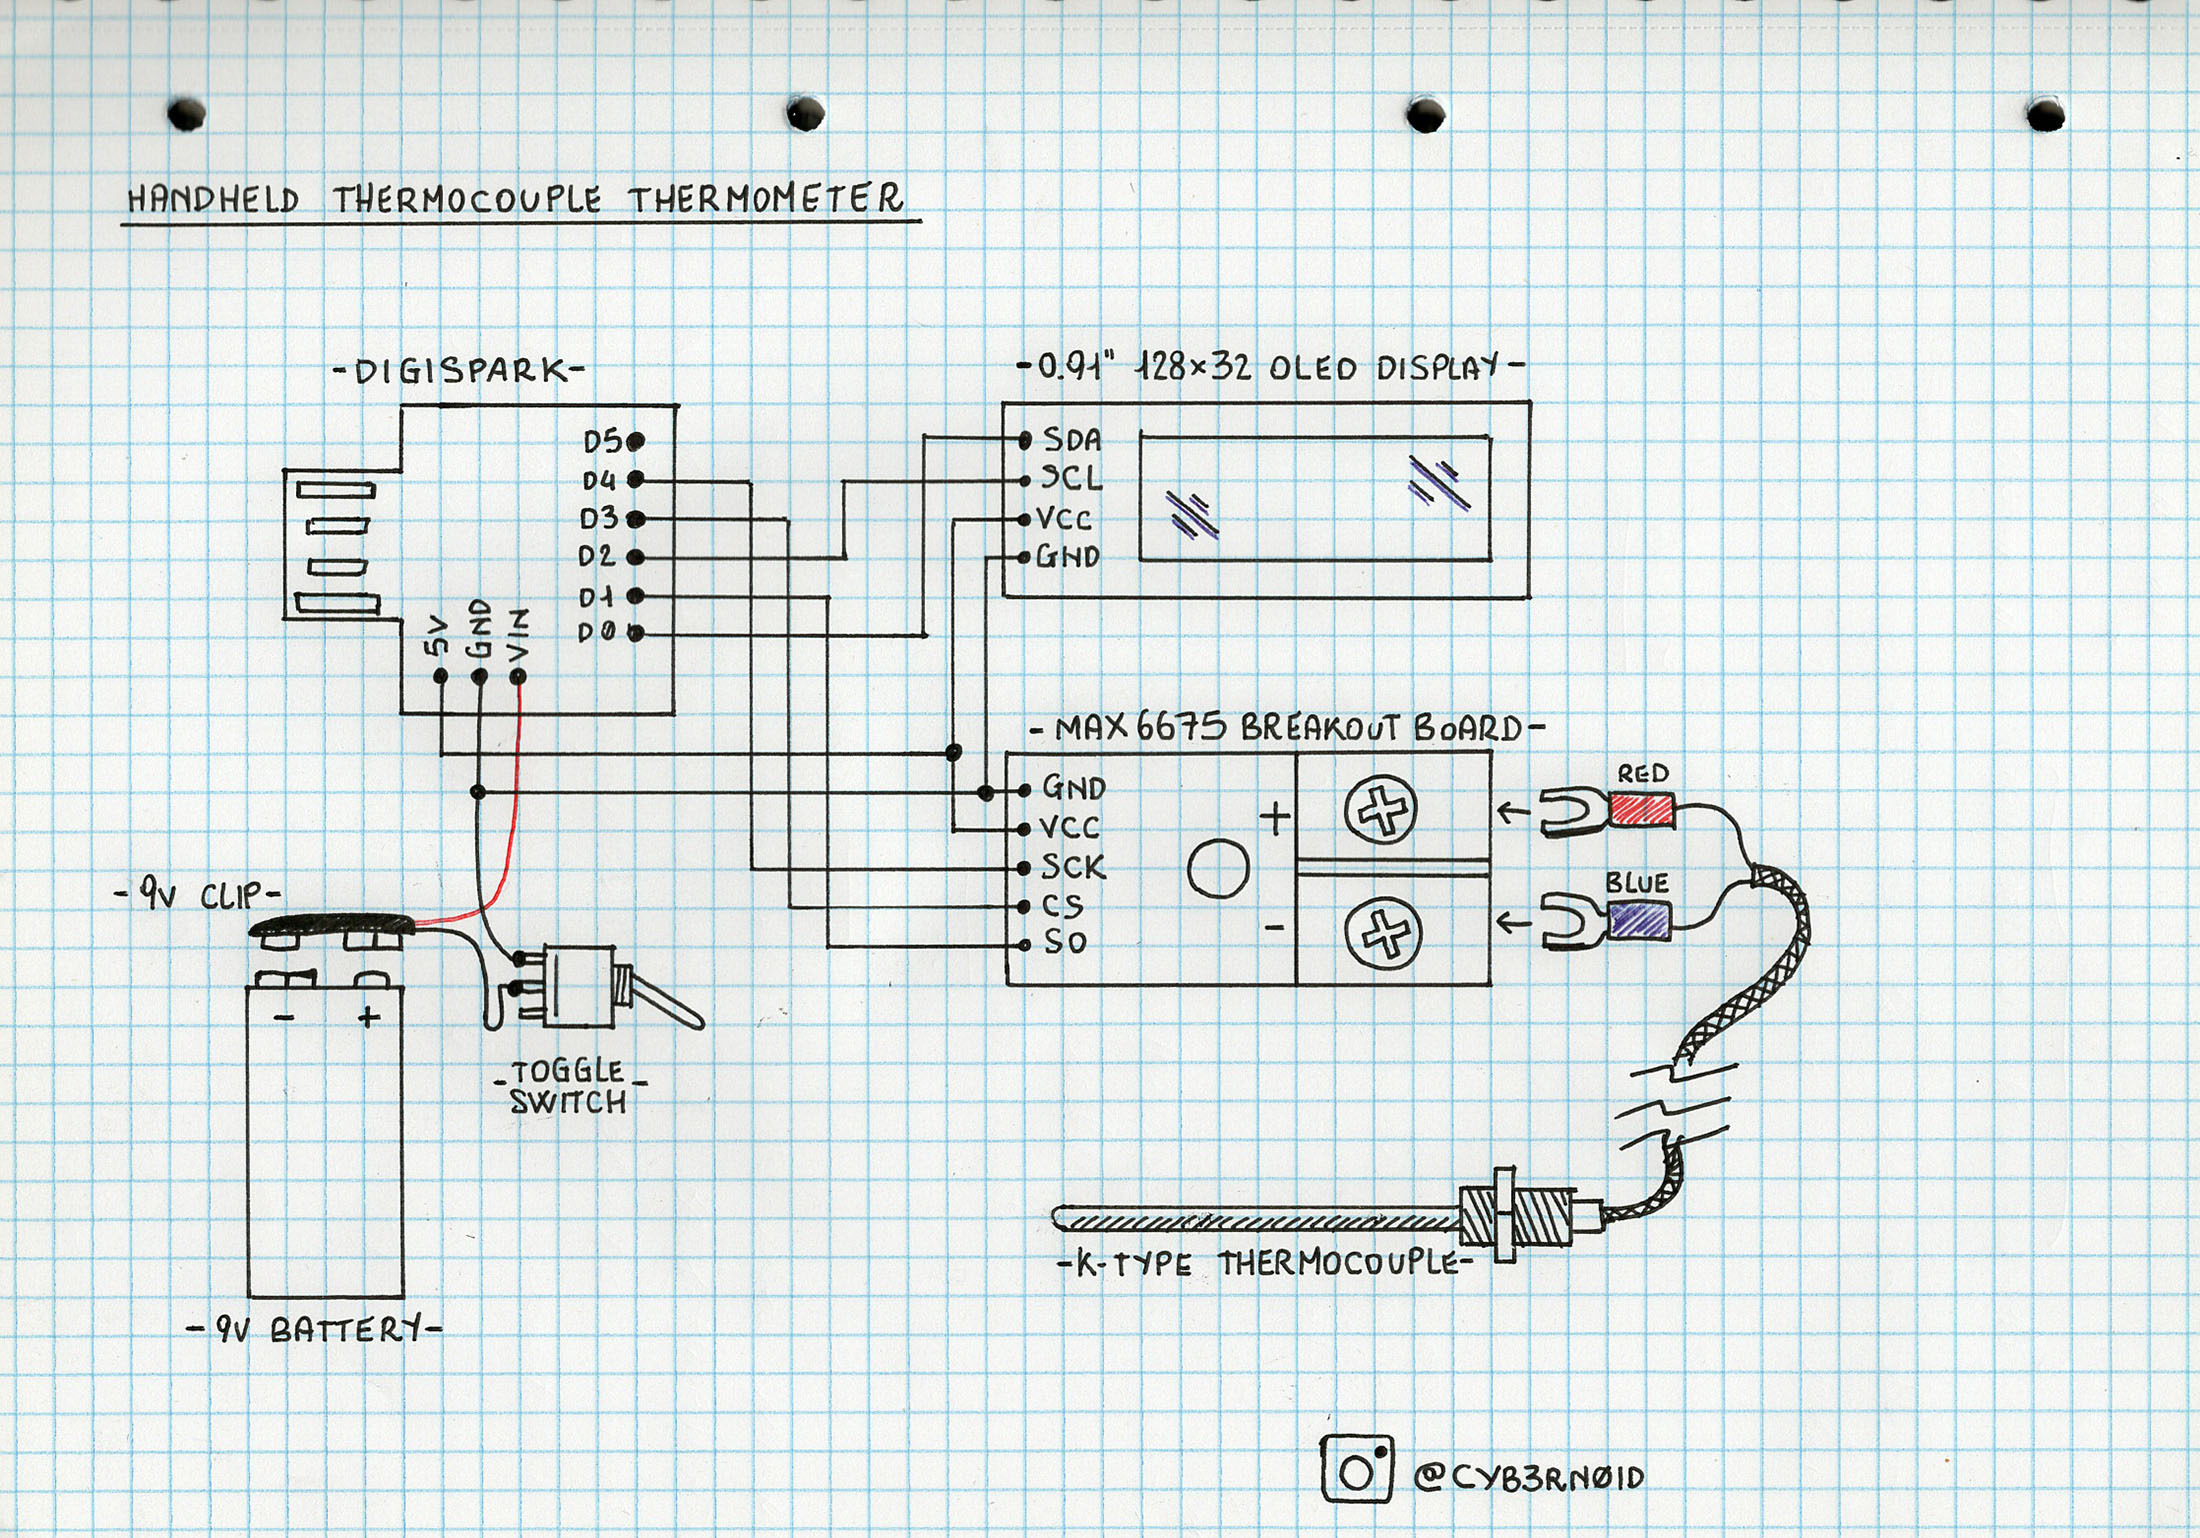 HANDHELD THERMOCOUPLE THERMOMETER
-DIGISPARK-
D5
D4
D3
D2
D1
DØ
5V
GND
VIN
-0.91" 128×32 OLED DISPLAY-
SDA
SCL
VCC
GND
-MAX6675 BREAKOUT BOARD-
GND
VCC
SCK
CS
SO
+
-
RED
BLUE
-9V CLIP-
- +
-TOGGLE-
SWITCH
-9V BATTERY-
-K-TYPE THERMOCOUPLE-
@CYB3RNØID